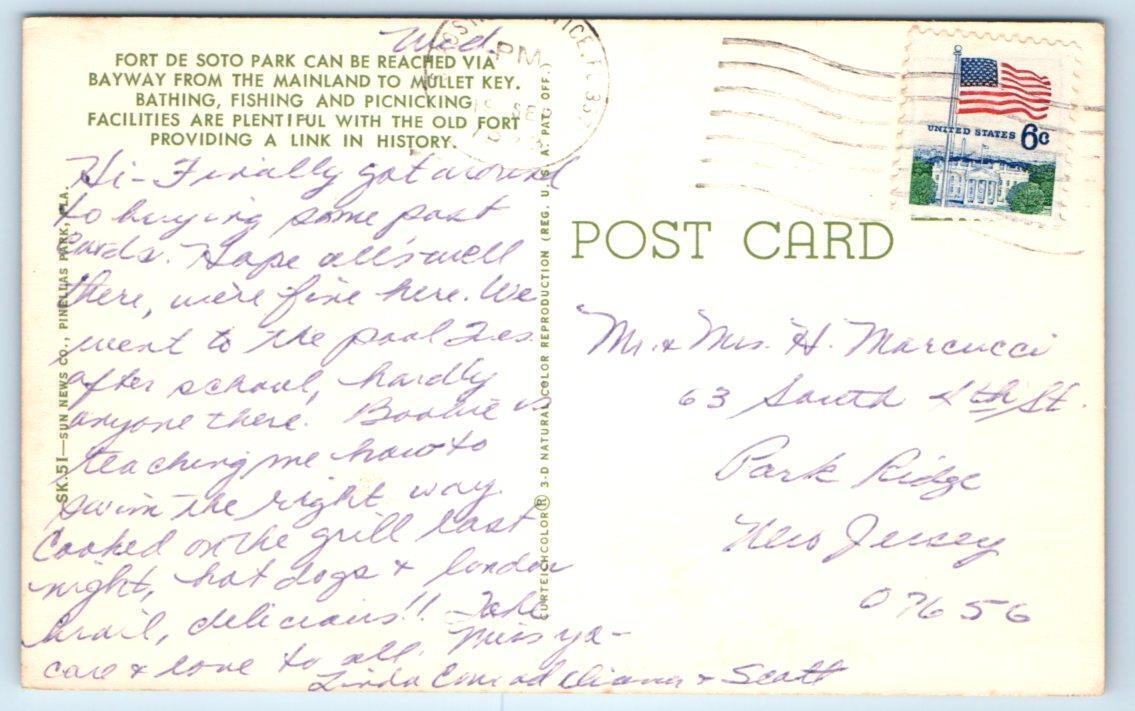 Wed.
FORT DE SOTO PARK CAN BE REACHED VIA
BAYWAY FROM THE MAINLAND TO MULLET KEY.
BATHING, FISHING AND PICNICKING
FACILITIES ARE PLENTIFUL WITH THE OLD FORT
PROVIDING A LINK IN HISTORY.
Hi - Finally got around
to buying some post
cards. Hope all's well
there, we're fine here. We
went to the pool Tues.
after school, hardly
anyone there. Boobie is
teaching me how to
swim the right way.
Cooked on the grill last
night, hot dogs & london
broil, delicious!! Take
care & love to all. Miss ya -
Linda Conrad Diana & Scott
SK.51—SUN NEWS CO., PINELLAS PARK, FLA.
CURTEICHCOLOR® 3-D NATURAL COLOR REPRODUCTION (REG. U.S.A. PAT. OFF.)
PM
UNITED STATES 6c
POST CARD
Mr. & Mrs. H. Marcucci
63 South 4th St.
Park Ridge
New Jersey
07656